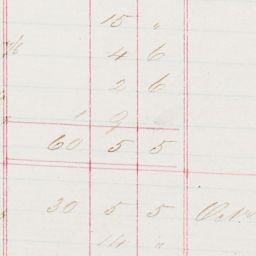 15 "
4 6
2 6
1 9
60 5 5
30 5 5 Oct
14 "